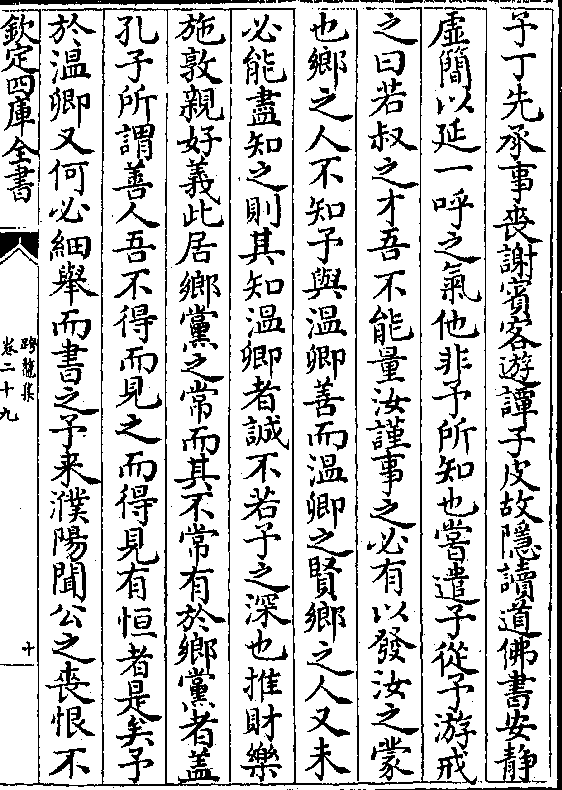 子丁先承事喪謝賓客遊譚子皮故隱讀道佛書安靜
虛簡以延一呼之氣他非予所知也嘗遣子從予游戒
之曰若叔之才吾不能量汝謹事之必有以發汝之蒙
也鄉之人不知予與溫卿善而溫卿之賢鄉之人又未
必能盡知之則其知溫卿者誠不若予之深也推財樂
施敦親好義此居鄉黨之常而其不常有於鄉黨者蓋
孔子所謂善人吾不得而見之而得見有恒者是矣予
於溫卿又何必細舉而書之予来濮陽聞公之喪恨不
欽定四庫全書
跨鼇集
卷二十九
十